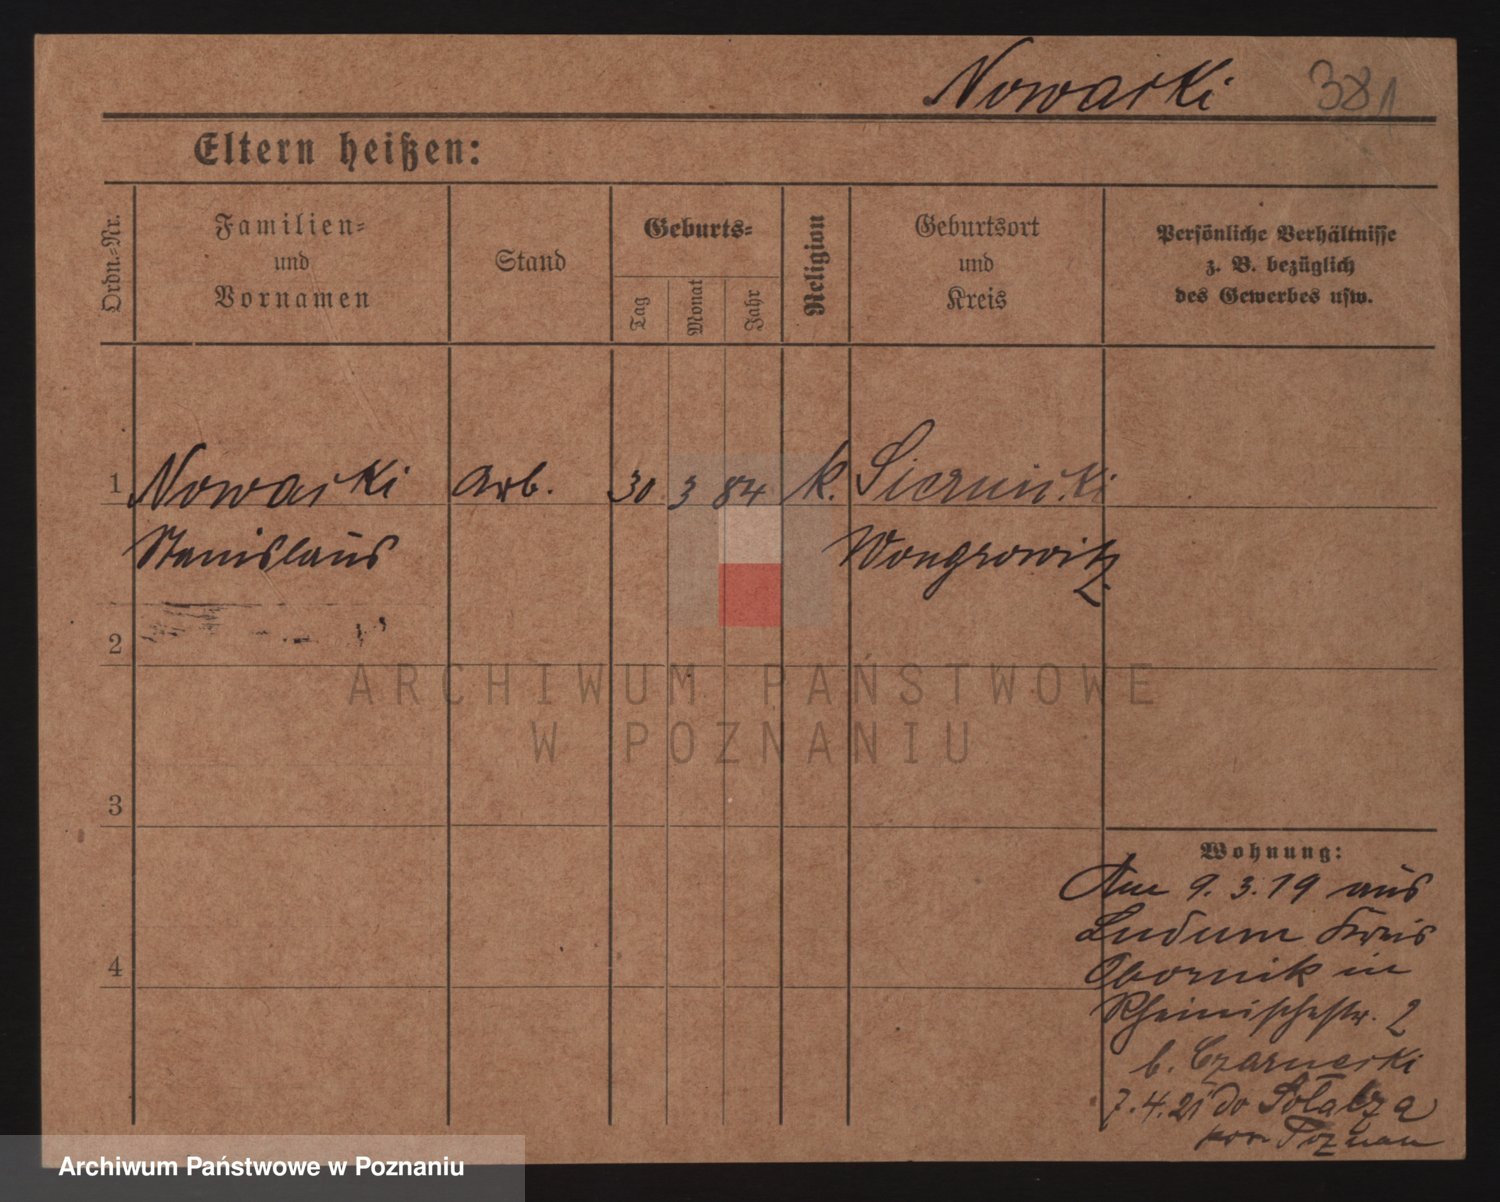 Nowacki 381
Eltern heißen:
Ordn.-Nr.
Familien-
und
Vornamen
Stand
Geburts-
Tag
Monat
Jahr
Religion
Geburtsort
und
Kreis
Persönliche Verhältnisse
z. B. bezüglich
des Gewerbes usw.
1 Nowacki Arb. 30 3 84 k.
Stanislaus Wongrowitz
2
ARCHIWUM PAŃSTWOWE
W POZNANIU
3
Wohnung:
Am 9. 3. 19 aus
Ludom Kreis
Obornik in
4
Rheinischestr. 2
b. Czarnecki
7.4.21 do Sołacza
pow Poznan
Archiwum Państwowe w Poznaniu